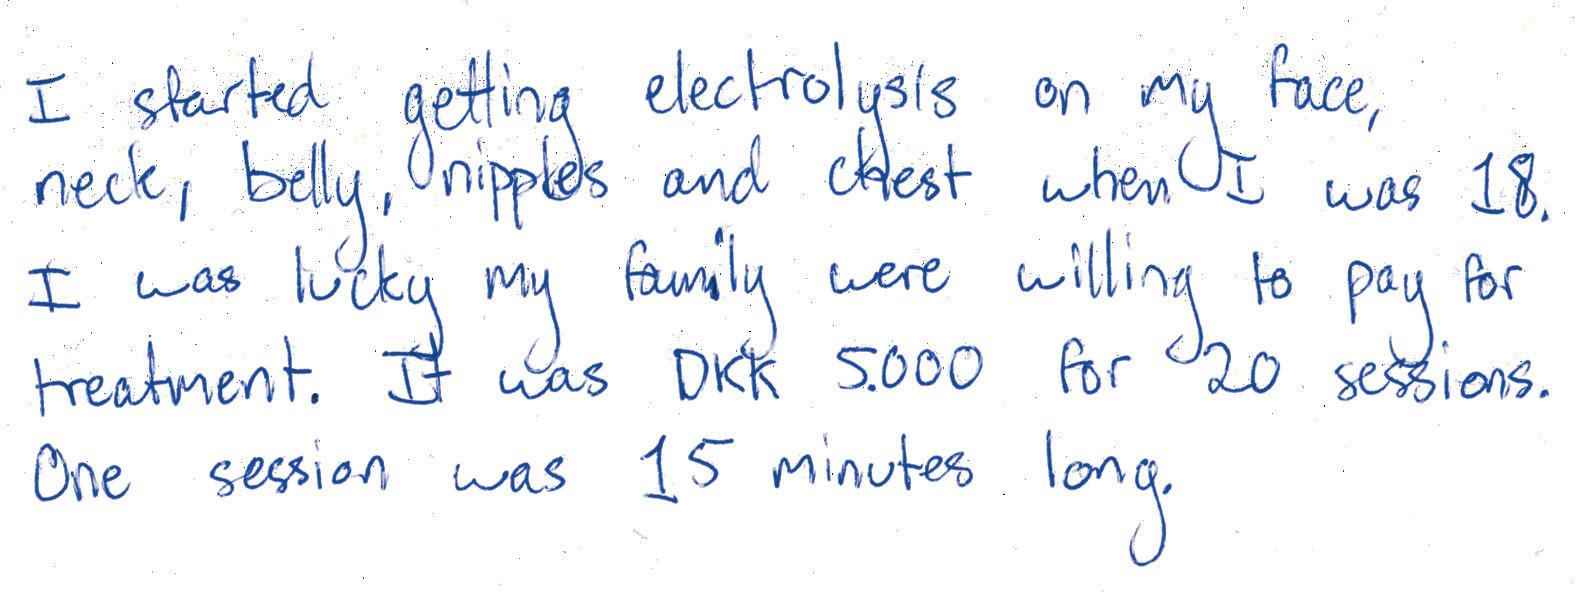 I started getting electrolysis on my face,
neck, belly, nipples and chest when I was 18.
I was lucky my family were willing to pay for
treatment. It was DKK 5.000 for 20 sessions.
One session was 15 minutes long.